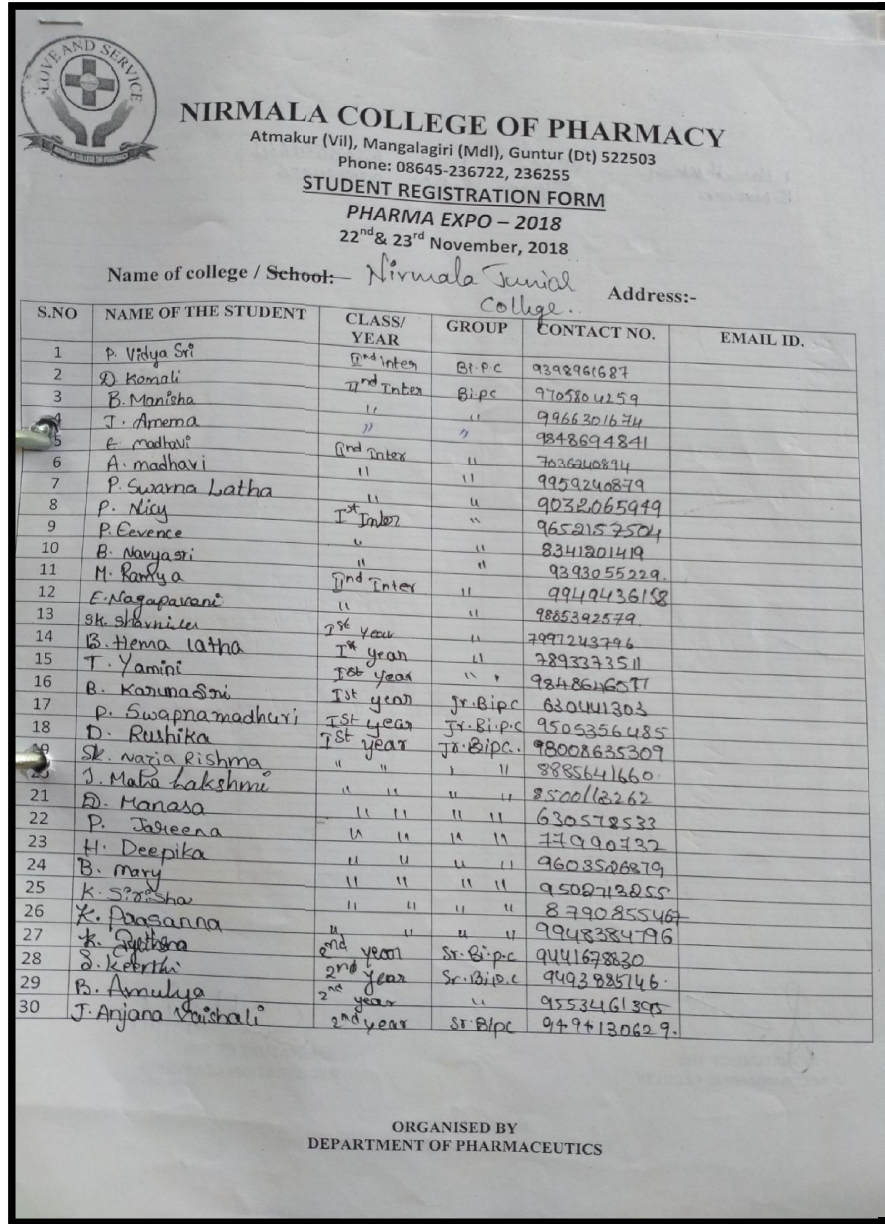 LOVE AND SERVICE
NIRMALA COLLEGE OF PHARMACY
NIRMALA COLLEGE OF PHARMACY
Atmakur (Vil), Mangalagiri (Mdl), Guntur (Dt) 522503
Phone: 08645-236722, 236255
STUDENT REGISTRATION FORM
PHARMA EXPO – 2018
22nd& 23rd November, 2018
Name of college / School:- Nirmala Junial College.. Address:-
S.NO NAME OF THE STUDENT CLASS/ YEAR GROUP CONTACT NO. EMAIL ID.
1 P. Vidya Sri IInd inter Bi.P.C 9398961687
2 D Komali IInd Inter Bipc 9705804259
3 B. Manisha " " 9966301674
4 J. Amema " " 9848694841
5 E. madhavi IInd Inter " 7036240894
6 A. madhavi " " 9959240879
7 P. Swarna Latha " " 9032065949
8 P. Nicy Ist Inter " 9652157504
9 P. Eevence " " 8341201419
10 B. Navyasri " " 9393055229.
11 M. Ramya IInd Inter " 9949436158
12 E. Nagapavani " " 9885392579
13 SK. Ist Year " 7997243796
14 B. Hema latha Ist year " 7893373511
15 T. Yamini Ist year " 9848646577
16 B. KarunaSri Ist year Jr.Bipc 630441303
17 P. Swapnamadhuri Ist year Jr.Bi.p.c 9505356485
18 D. Rushika Ist year Jr.Bipc. 98008635309
19 SK. Nazia Rishma " " " " 8885641660.
20 J. Maha Lakshmi " " " " 8500113262
21 D. Manasa " " " " 630578533
22 P. Jareena " " " " 77990732
23 H. Deepika " " " " 9603526879
24 B. mary " " " " 9502713255
25 K. Sirisha " " " " 8790855467
26 K. Prasanna " " " " 9948384796
27 K. 2nd year Sr.Bi.p.c 9441678830
28 S. Keerthi 2nd year Sr.Bi.p.c 9493885746.
29 B. Amulya 2nd year " 9553461395
30 J. Anjana Vaishali 2nd year Sr.Bipc 9494130629.
ORGANISED BY
DEPARTMENT OF PHARMACEUTICS